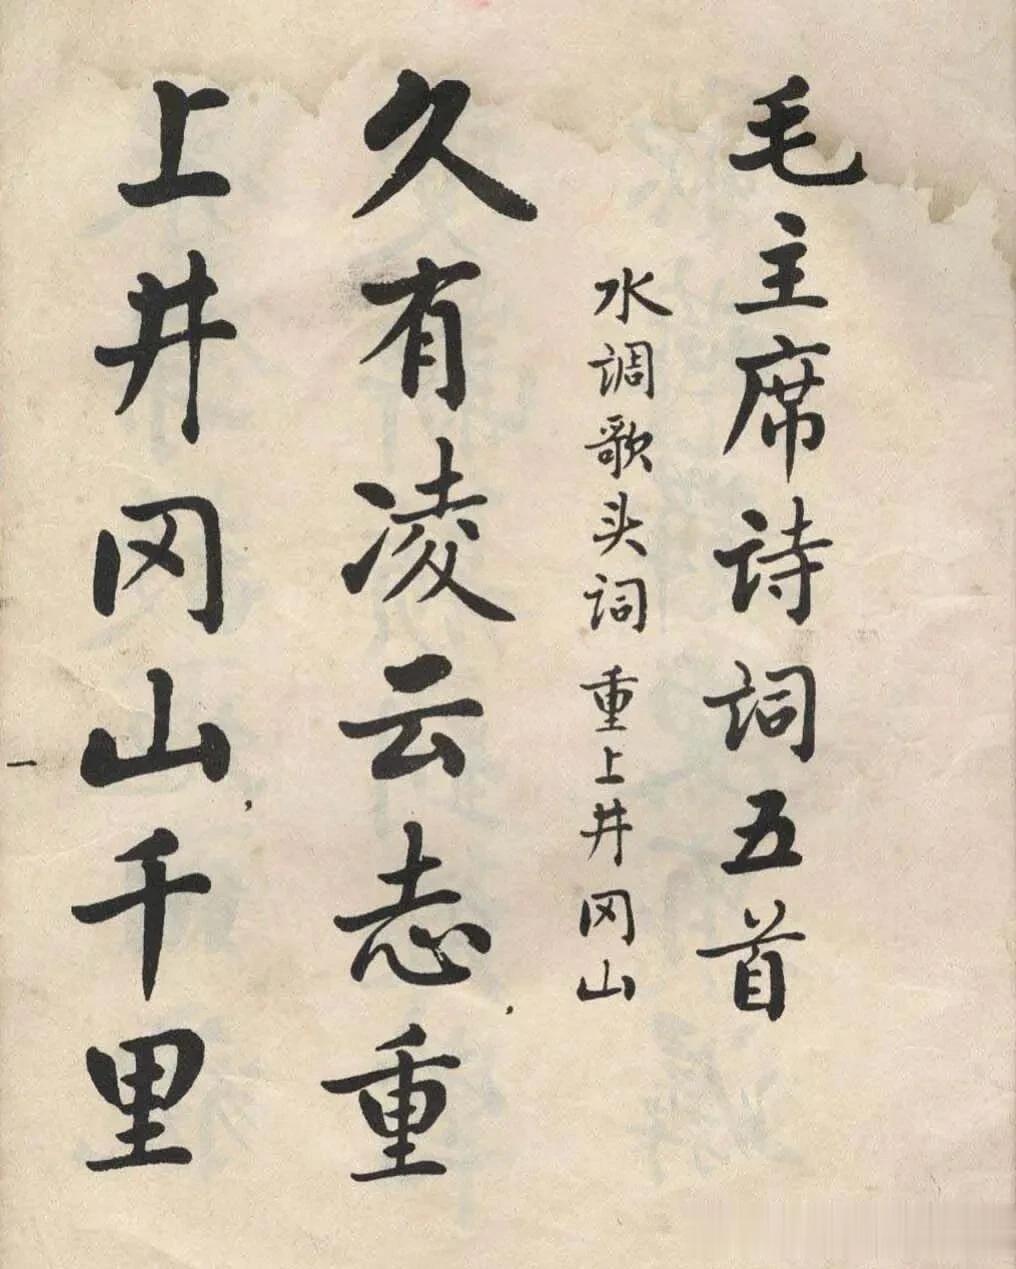 毛主席诗词五首
水调歌头词 重上井冈山
久有凌云志，重
上井冈山，千里
一